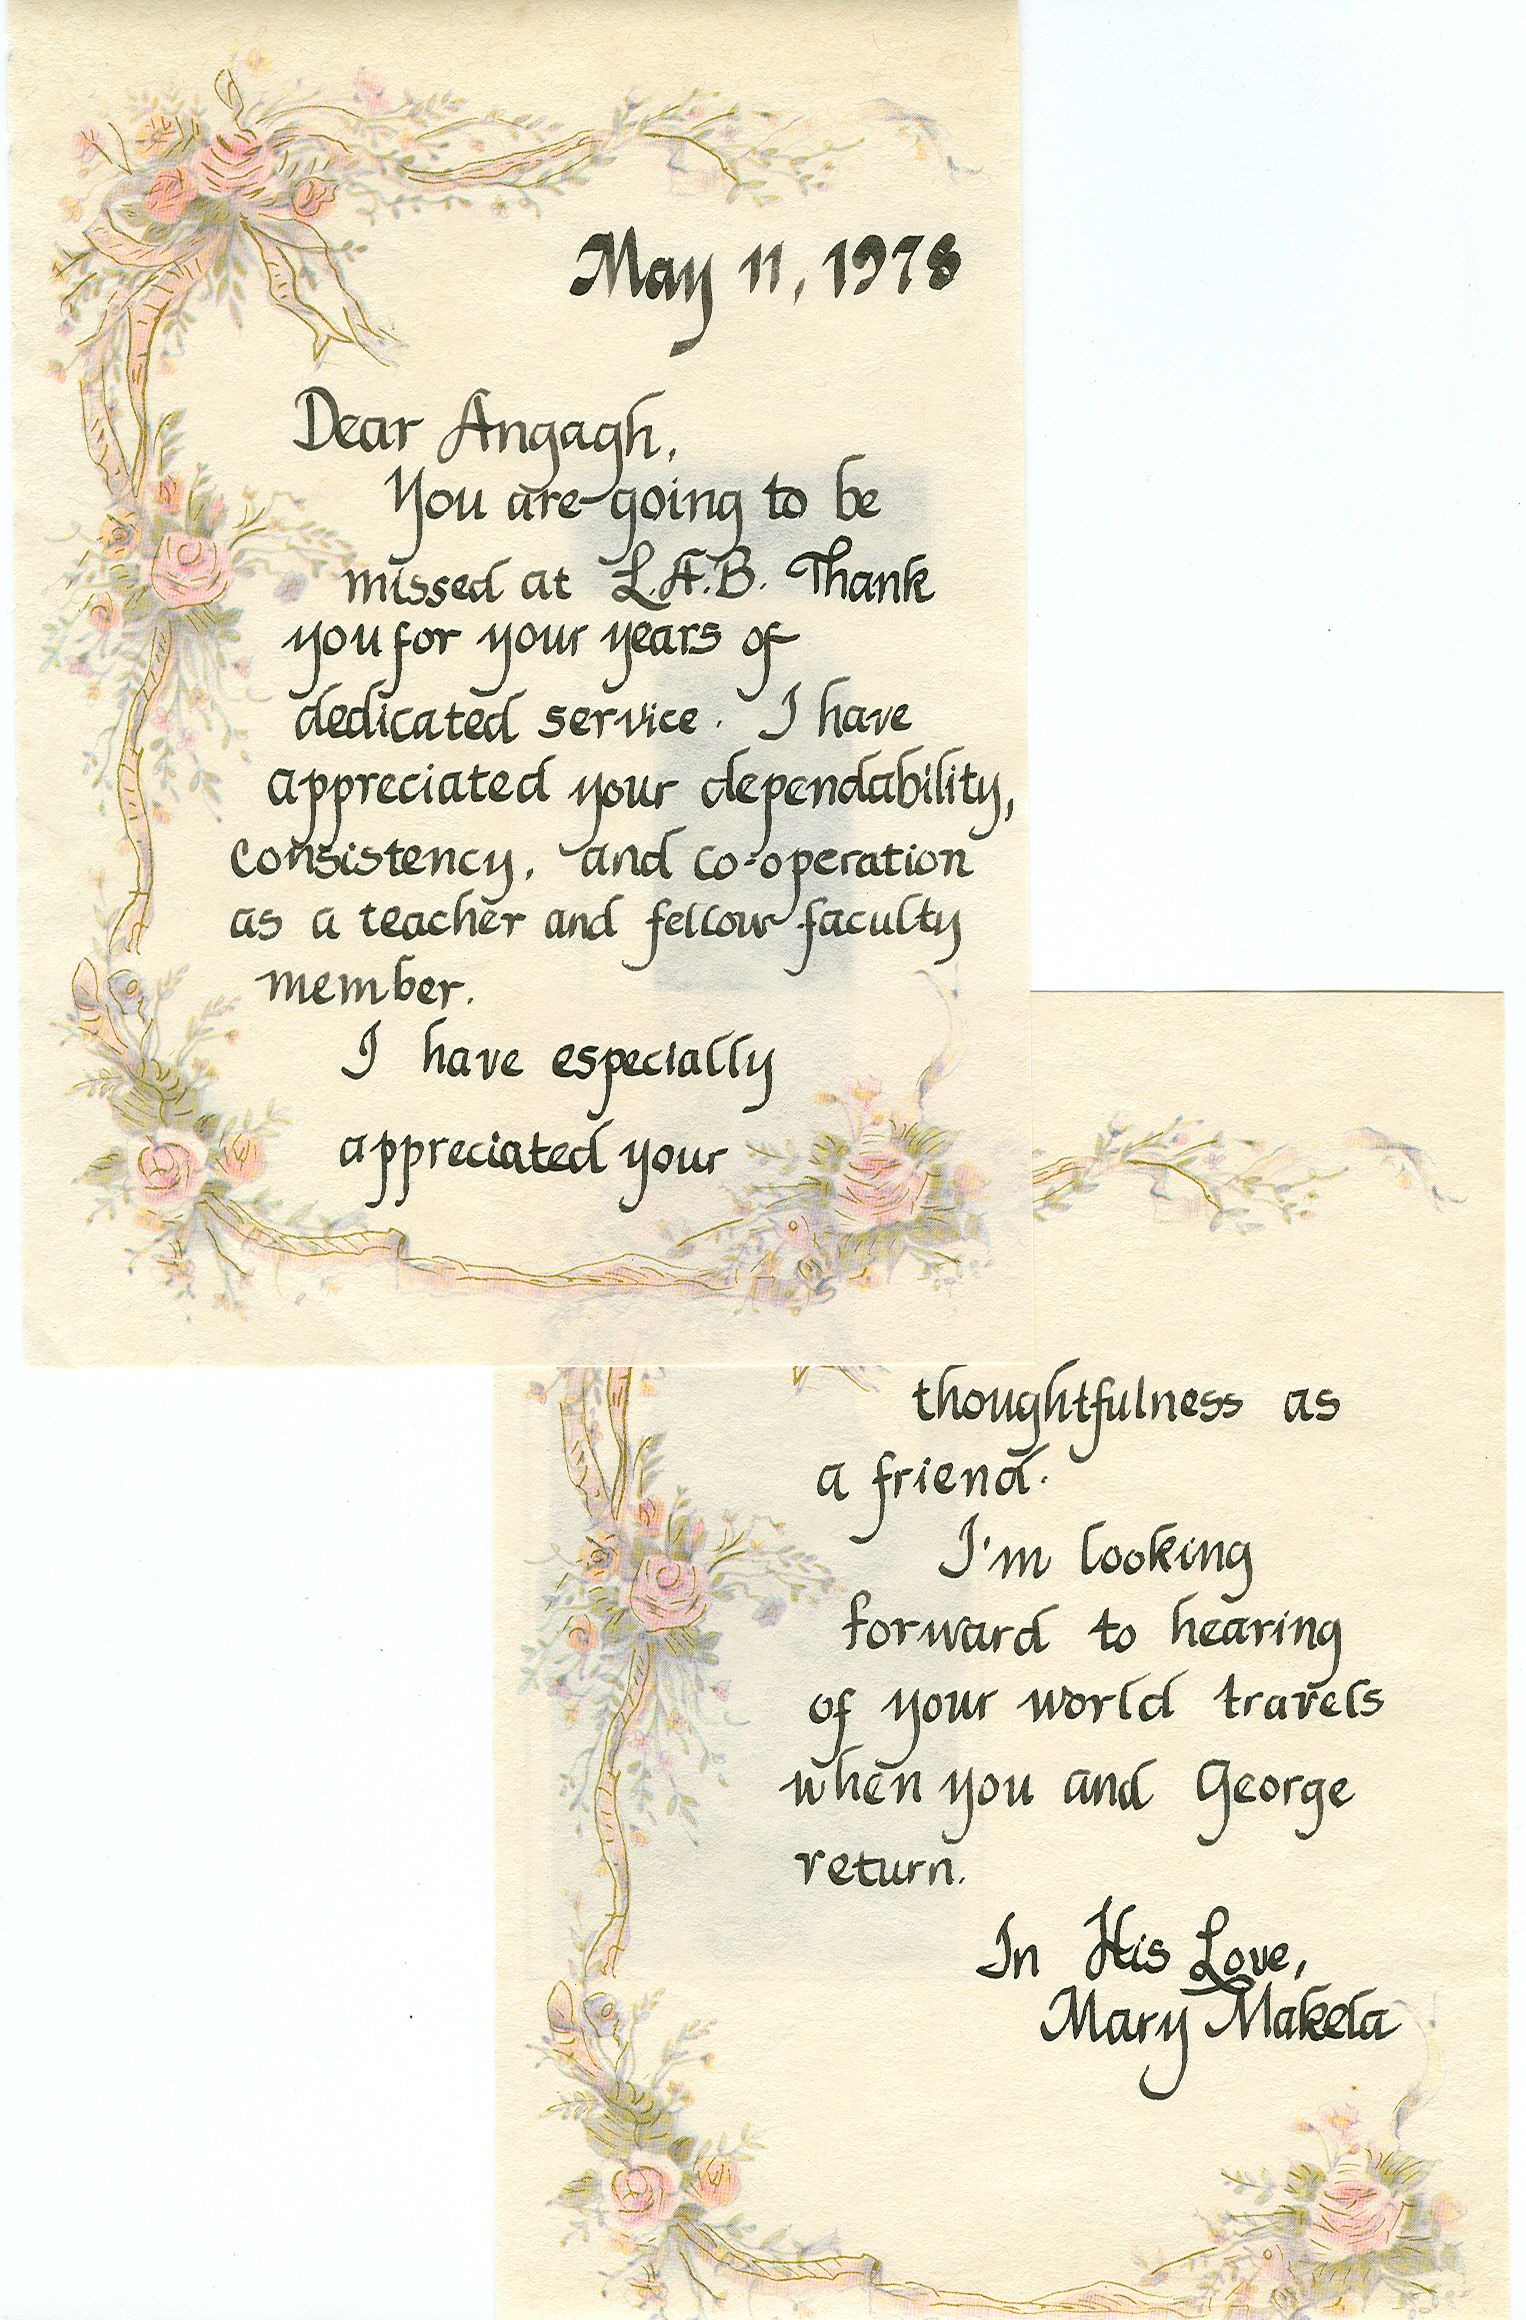 May 11, 1978
Dear Angagh,
You are going to be
missed at L.A.B. Thank
you for your years of
dedicated service. I have
appreciated your dependability,
consistency, and co-operation
as a teacher and fellow faculty
member.
I have especially
appreciated your
thoughtfulness as
a friend.
I'm looking
forward to hearing
of your world travels
when you and George
return.
In His Love,
Mary Makela